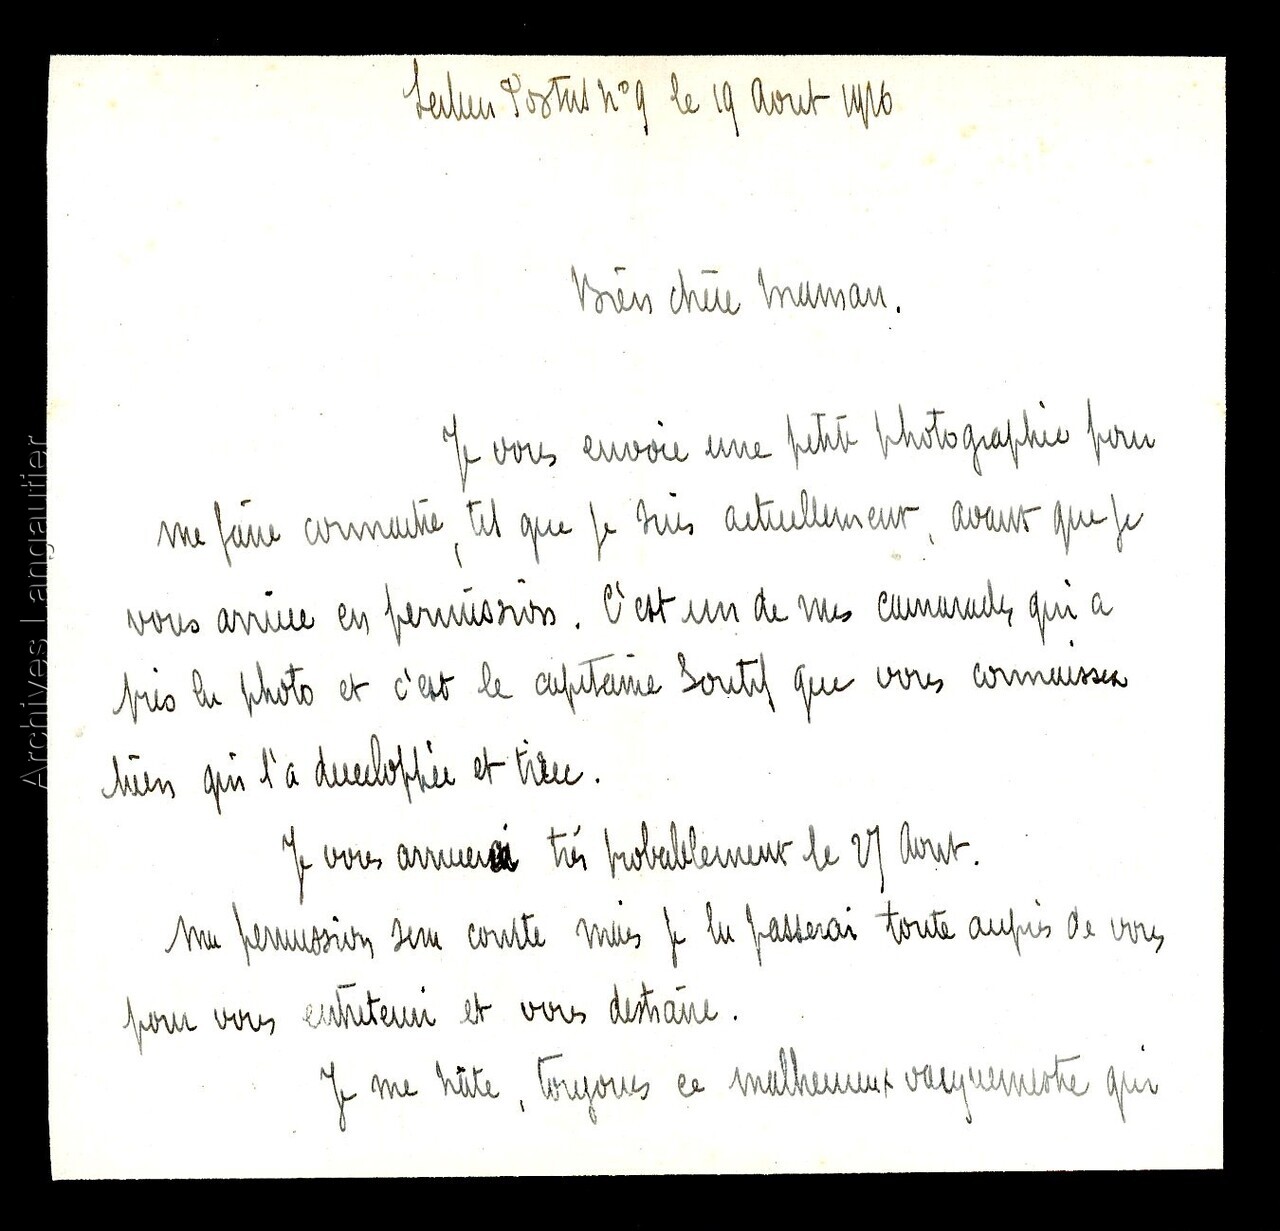 Secteur Postal N° 9 le 19 Aout 1916
Bien chère Maman.
Je vous envoie une petite photographie pour
me faire connaitre, tel que je suis actuellement, avant que je
vous arrive en permission. C'est un de mes camarades qui a
pris la photo et c'est le capitaine Soutif que vous connaissez
bien qui l'a developpée et tirée.
Je vous arriverai très probablement le 27 Aout.
Ma permission sera courte mais je la passerai toute auprès de vous
pour vous entretenir et vous distraire.
Je me hâte, toujours ce malheureux vaguemestre qui
Archives Langautier